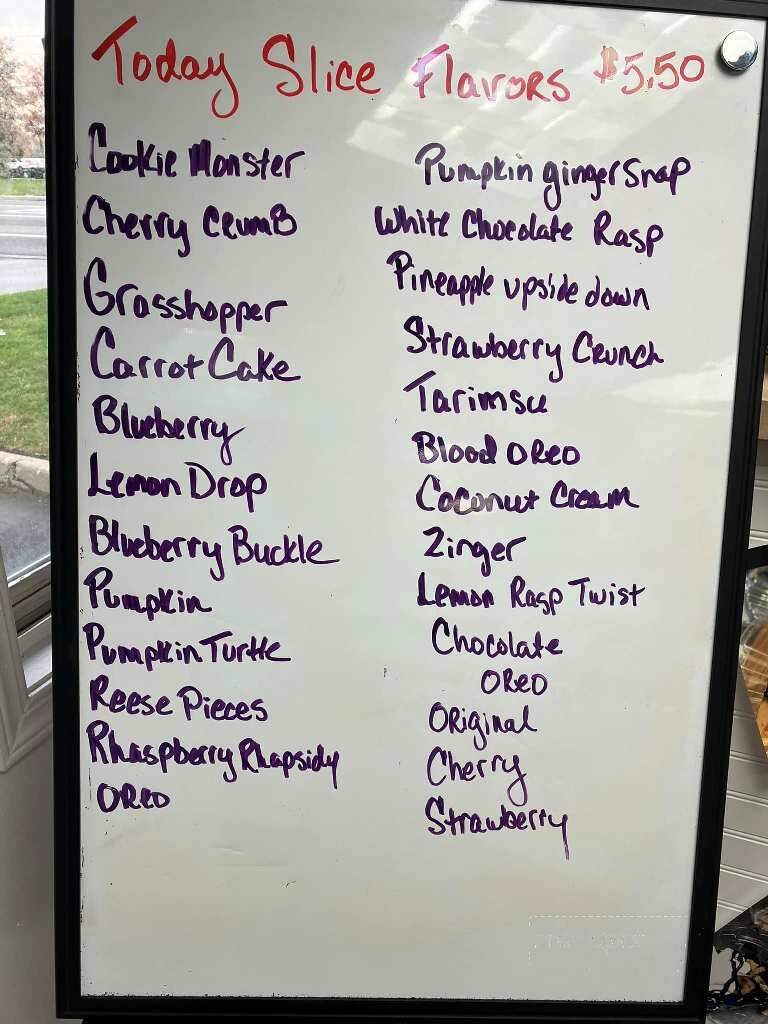 Today Slice Flavors $5.50
Cookie Monster
Cherry CrumB
Grasshopper
Carrot Cake
Blueberry
Lemon Drop
Blueberry Buckle
Pumpkin
Pumpkin Turtle
Reese Pieces
Rhaspberry Rhapsidy
OReo
Pumpkin gingerSnap
White Chocolate Rasp
Pineapple upside down
Strawberry Crunch
Tarimsu
Blood OReo
Coconut Cream
Zinger
Lemon Rasp Twist
Chocolate
OReo
ORiginal
Cherry
Strawberry